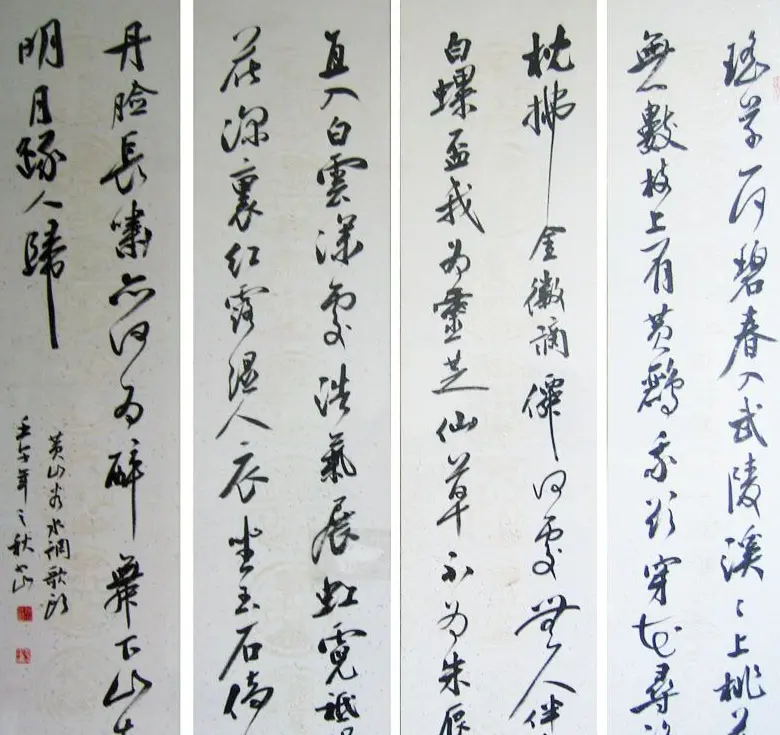 瑤草一何碧春入武陵溪〻上桃花
無數枝上有黃鸝我欲穿花尋
枕拂金徽謫僊何處無人伴
白螺盃我為靈芝仙草不為朱唇
直入白雲深處浩氣展虹霓祗
花深裏红露濕人衣坐玉石倚
丹臉長嘯亦何為醉舞下山去
明月逐人歸
黃山谷水調歌頭
壬午年之秋